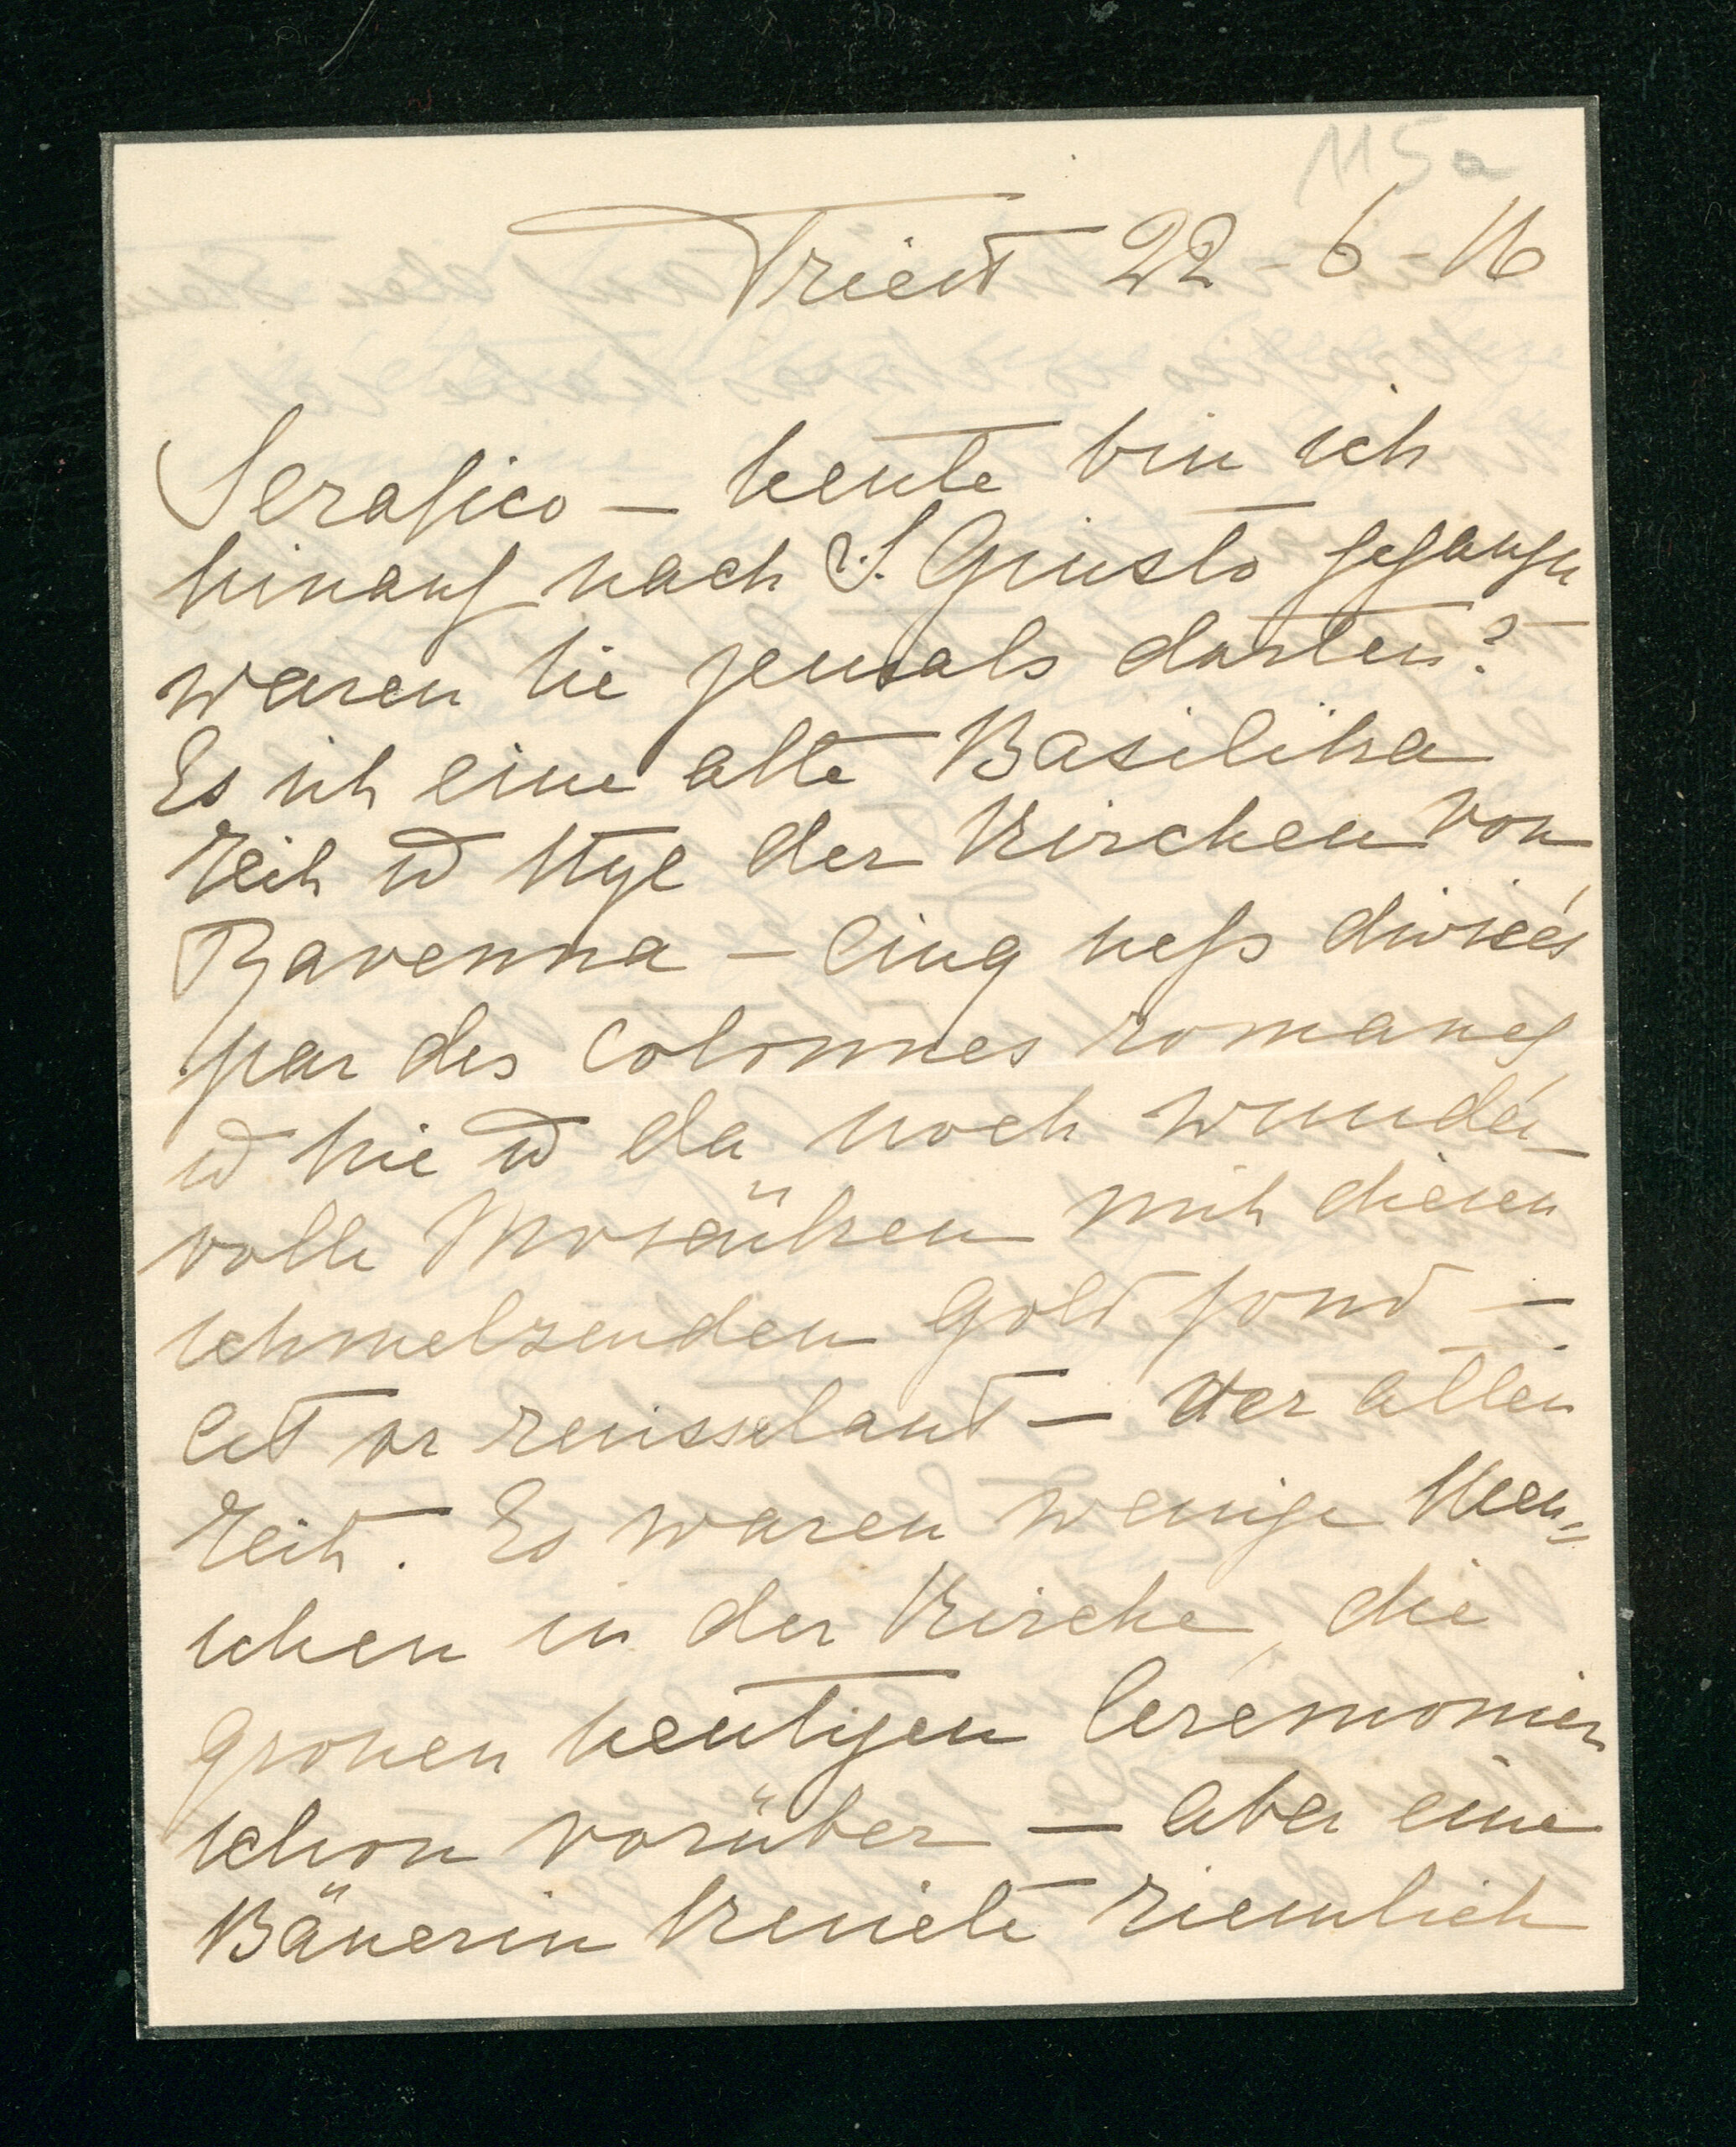 115a
Triest 22-6-16
Serafico — heute bin ich
hinauf nach S. Giusto gegangen
waren Sie jemals dorten?
Es ist eine alte Basilika
Zeit u Styl der Kirchen von
Ravenna — cinq nefs divisés
par des colonnes romanes
u hie u da noch wunder-
volle Mosaiken mit diesen
schmelzenden Gold fond —
cet or ruisselant — der alten
Zeit. Es waren wenige Men=
schen in der Kirche, die
grossen heutigen Ceremonien
schon vorüber — aber eine
Bäuerin kniete ziemlich